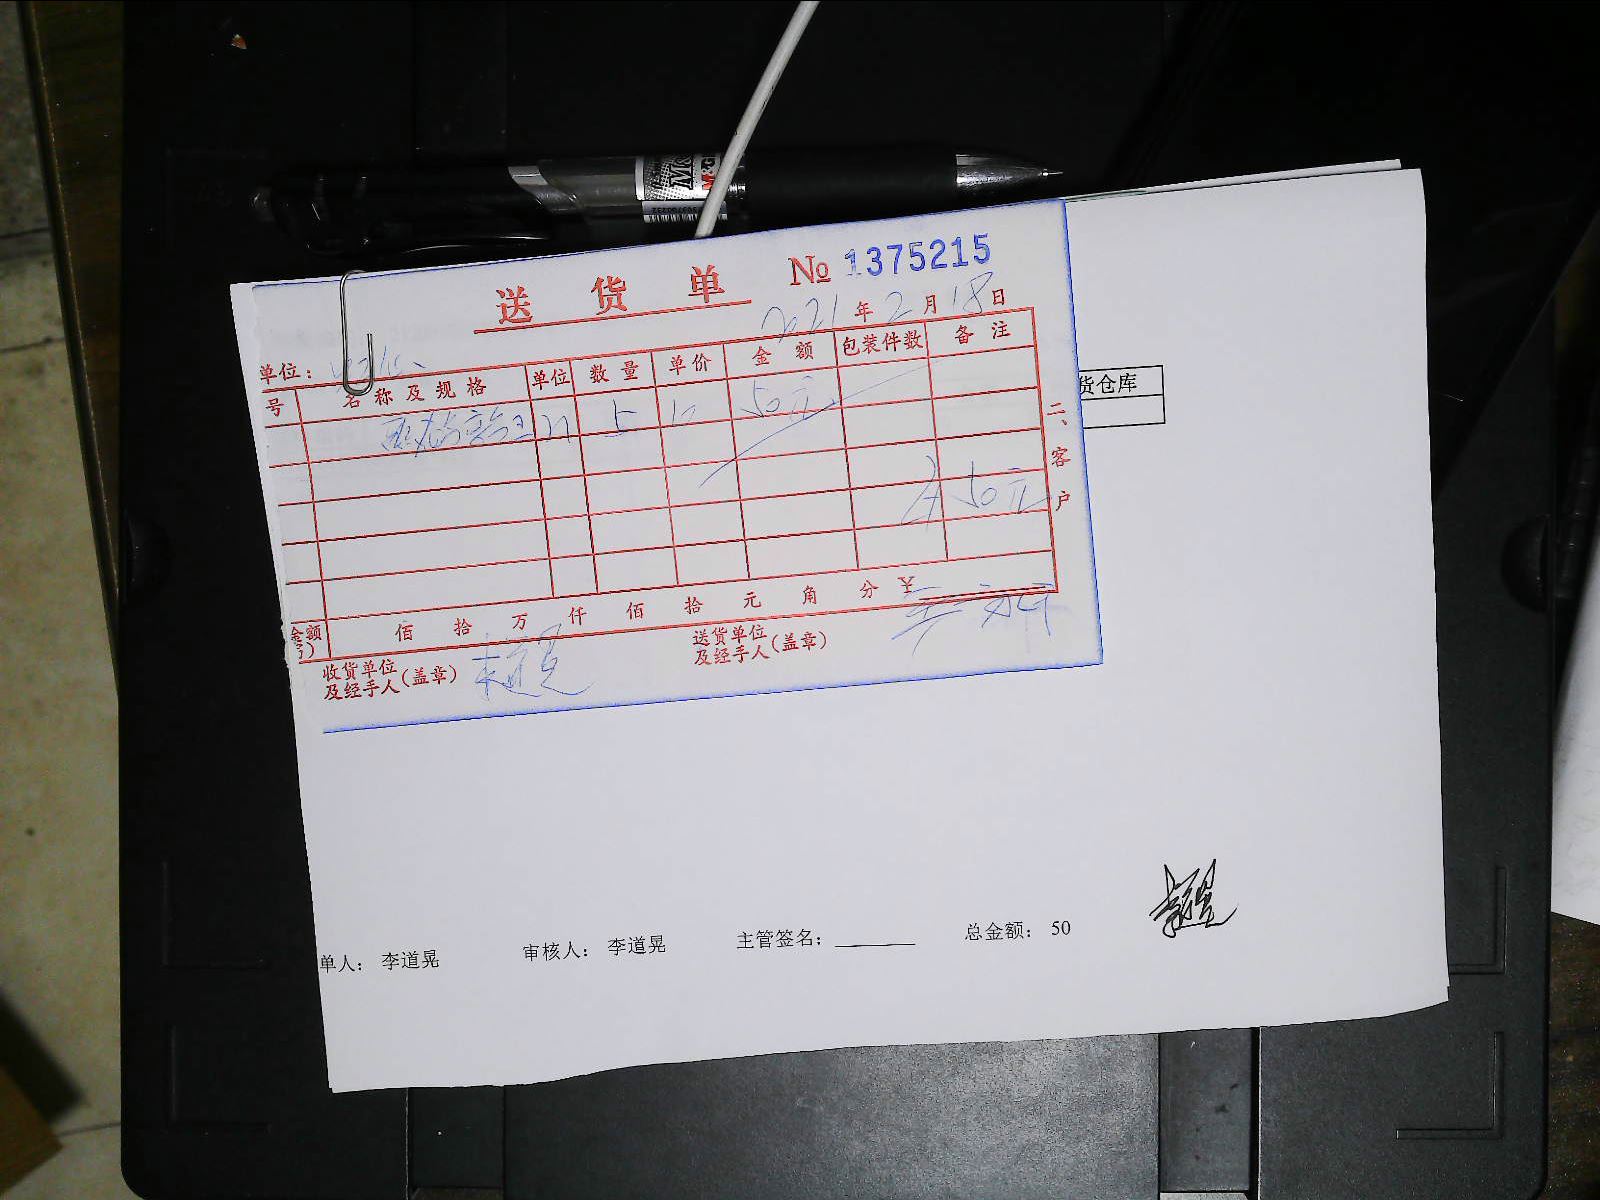 送 货 单 № 1375215
2021 年 2 月 18 日
单位：
号 名 称 及 规 格 单位 数 量 单 价 金 额 包装件数 备 注
5 10 50元
共50元
二、客户
金额 佰 拾 万 仟 佰 拾 元 角 分 ￥
收货单位
及经手人(盖章) 李道晃
送货单位
及经手人(盖章)
货仓库
单人： 李道晃 审核人： 李道晃 主管签名： 总金额： 50